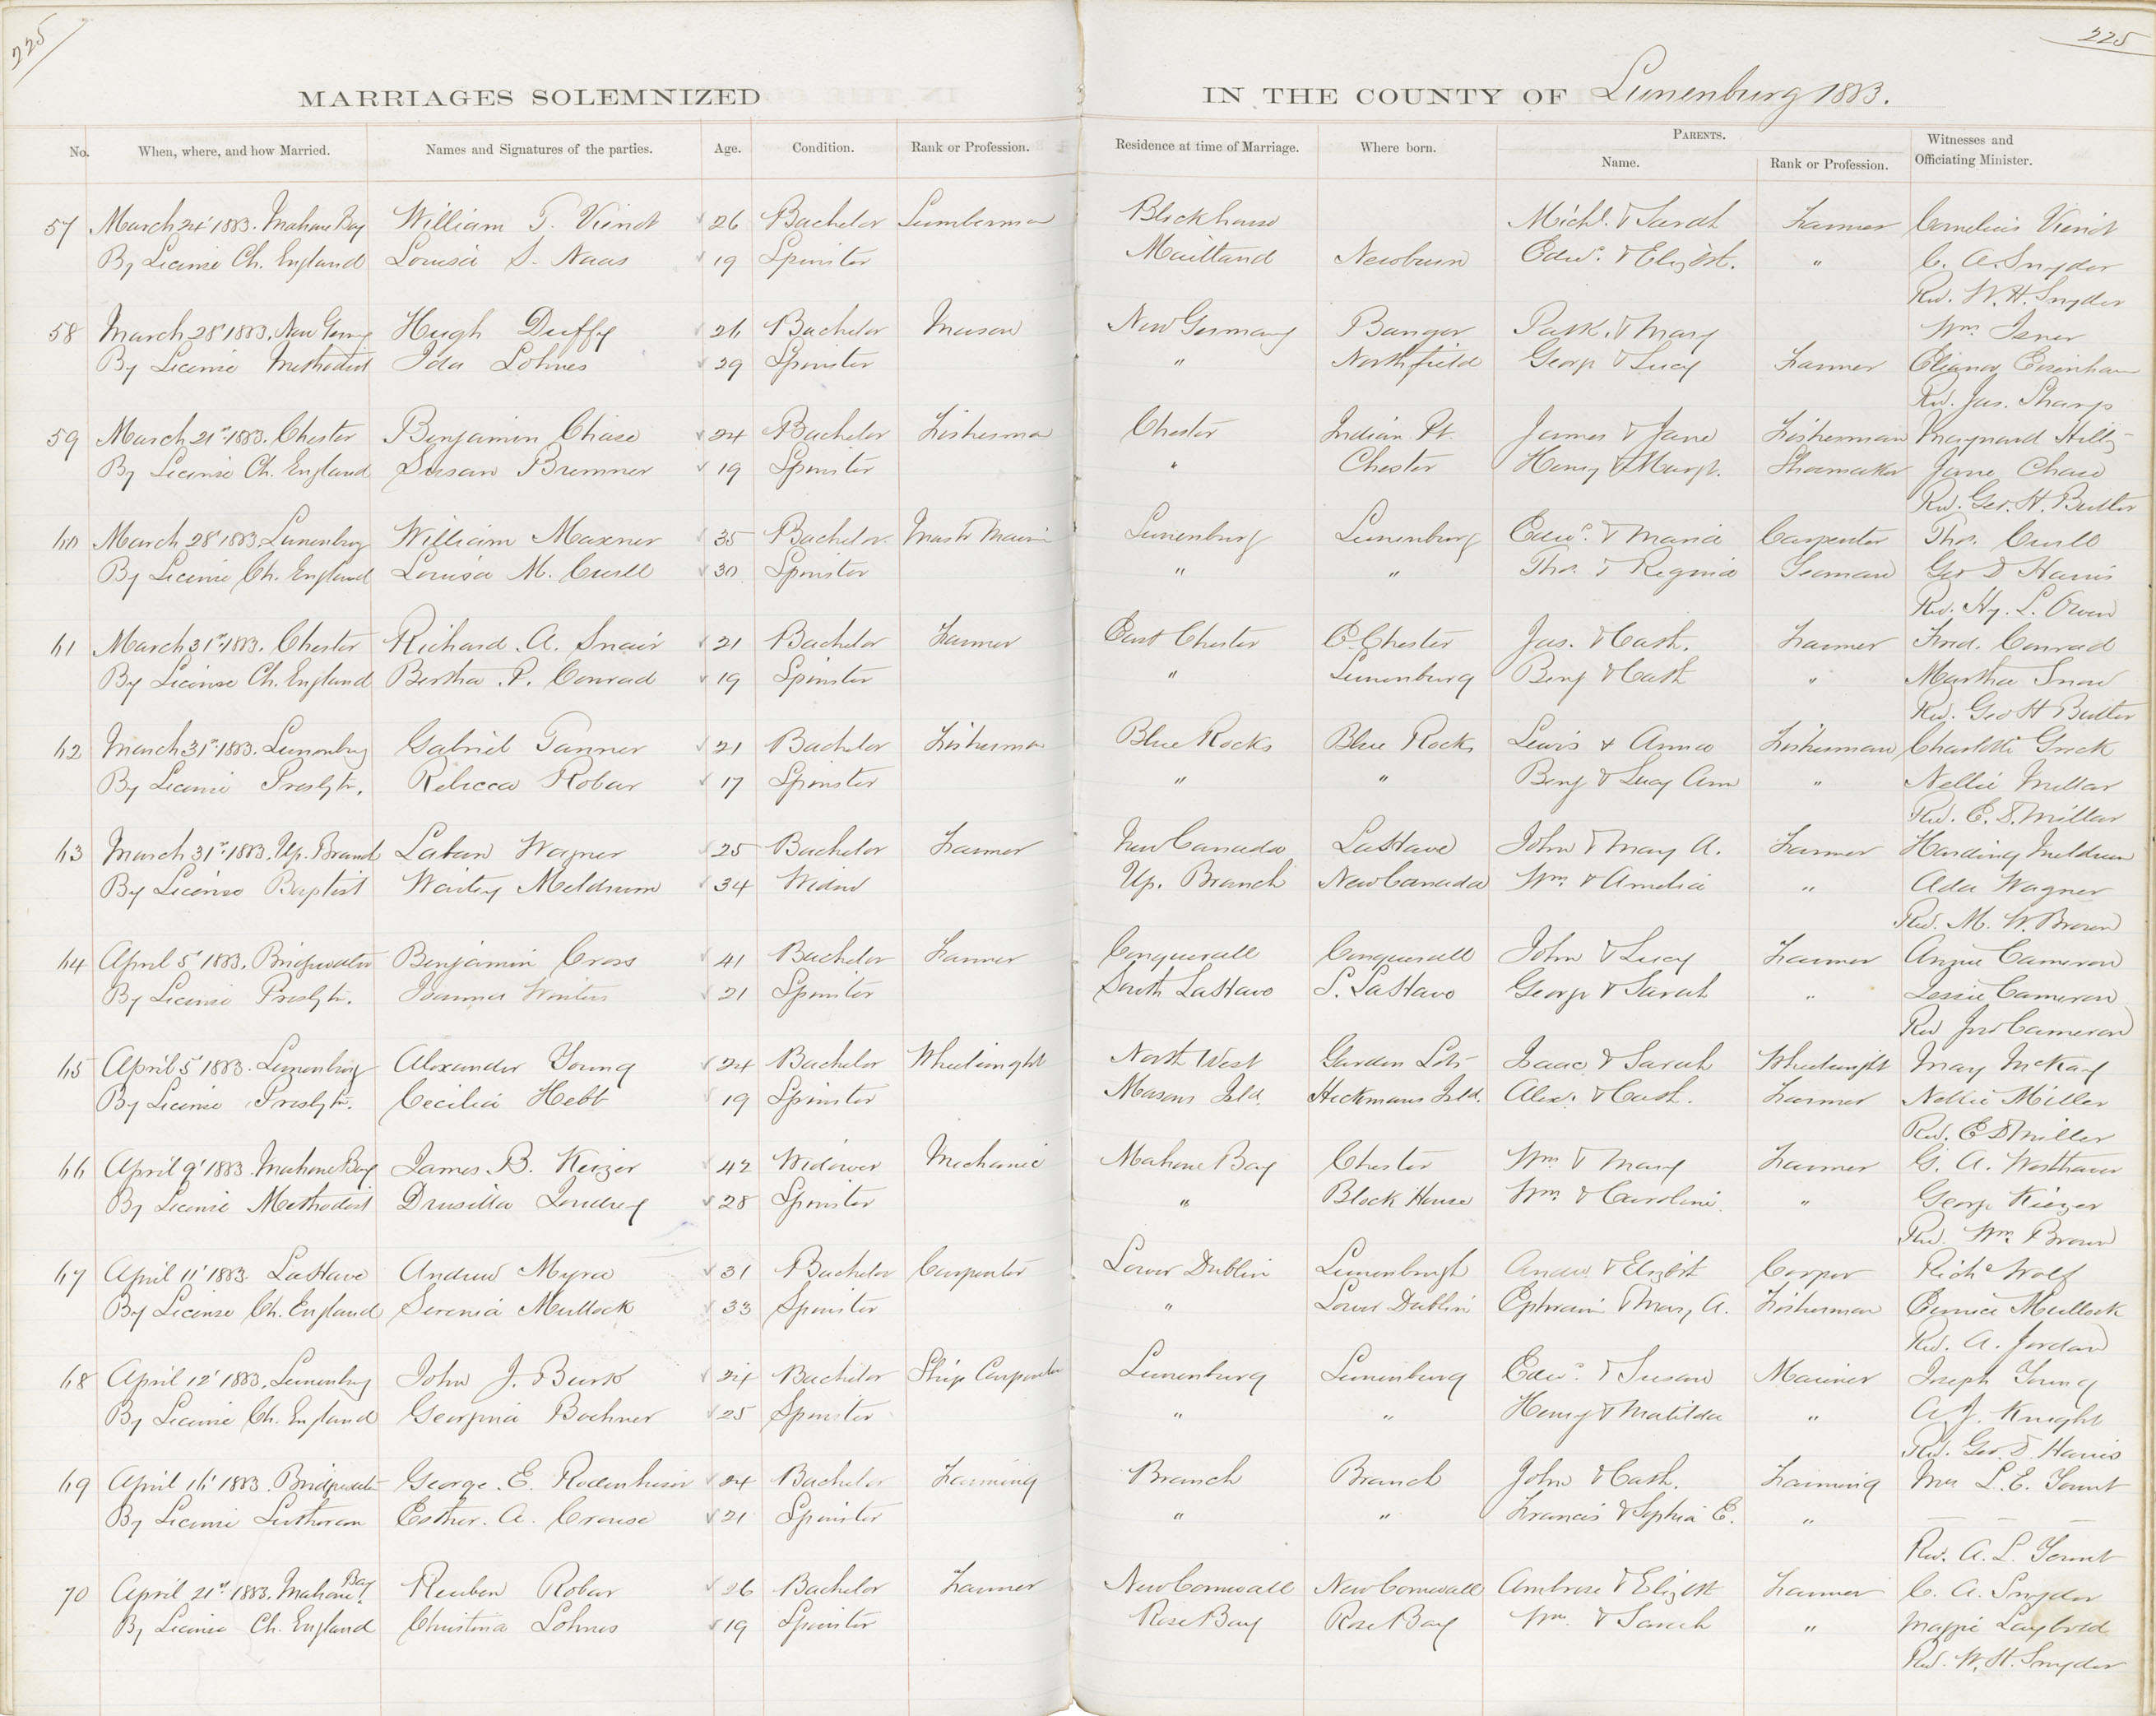 225
225
MARRIAGES SOLEMNIZED IN THE COUNTY OF Lunenburg 1883.
No. When, where, and how Married. Names and Signatures of the parties. Age. Condition. Rank or Profession. Residence at time of Marriage. Where born. PARENTS. Name. Rank or Profession. Witnesses and Officiating Minister.
57 March 24' 1883. Mahone Bay William T. Vienot 26 Bachelor Lumberman Blockhouse Michl. & Sarah Farmer Cornelius Vienot
By License Ch. England Louisa S. Naas 19 Spinster Maitland Newburn Edwd. & Elizbth. " C. A. Snyder
Rev. W. H. Snyder
58 March 28' 1883. New Germy Hugh Duffy 26 Bachelor Mason New Germany Bangor Patk. & Mary Wm Isner
By License Methodist Ida Lohnes 29 Spinster " Northfield George & Lucy Farmer Eleanor
Rev. Jas. Sharp
59 March 21st 1883. Chester Benjamin Chase 24 Bachelor Fisherman Chester Indian Pt. James & Jane Fisherman Maynard Hilty
By License Ch. England Susan Bremner 19 Spinster " Chester Henry & Margt. Shoemaker Jane Chase
Rev. Geo. H. Butler
60 March 28' 1883. Lunenburg William Maxner 35 Bachelor Mastr Marin Lunenburg Lunenburg Edwd. & Maria Carpenter Thos. Crull
By License Ch. England Louisa M. Crull 30 Spinster " " Thos. & Regina Seaman Geo D Harris
Rev. Hy. L. Owen
61 March 31st 1883. Chester Richard. A. Snair 21 Bachelor Farmer East Chester E. Chester Jas. & Cath. Farmer Fred. Conrad
By License Ch. England Bertha. P. Conrad 19 Spinster " Lunenburg Benj & Cath " Martha Snow
Rev. Geo H Butler
62 March 31st 1883. Lunenburg Gabriel Tanner 21 Bachelor Fisherman Blue Rocks Blue Rocks Lewis & Anna Fisherman Charlotte Greek
By License Presbytn. Rebecca Robar 17 Spinster " " Benj & Lucy Ann " Nellie Millar
Rev. E. D. Millar
63 March 31st 1883. Up. Branch Laban Wagner 25 Bachelor Farmer New Canada LaHave John & Mary A. Farmer Harding Meldrum
By License Baptist Waitey Meldrum 34 Widow Up. Branch New Canada Wm. & Amelia " Ada Wagner
Rev. M. W. Brown
64 April 5' 1883. Bridgewater Benjamin Cross 41 Bachelor Farmer Conquerall Conquerall John & Lucy Farmer Annie Cameron
By License Presbytn. Joanna Winters 21 Spinster South LaHave S. LaHave George & Sarah " Jessie Cameron
Rev Jno Cameron
65 April 5' 1883. Lunenburg Alexander Young 24 Bachelor Wheelwright North West Garden Lots Isaac & Sarah Wheelwright May McKay
By License Presbytn. Cecilia Hebb 19 Spinster Masons Isld. Heckmans Isld. Alexr. & Cath. Farmer Nellie Miller
Rev. E D Miller
66 April 9' 1883. Mahone Bay James. B. Keizer 42 Widower Mechanic Mahone Bay Chester Wm & Mary Farmer G. A. Westhaver
By License Methodist Drusilla Joudrey 28 Spinster " Block House Wm. & Caroline " George Kiezer
Rev. Wm. Brown
67 April 11' 1883. LaHave Andrew Myra 31 Bachelor Carpenter Lower Dublin Lunenburgh Andw. & Elizbth Carper Richd Wolf
By License Ch. England Serenia Mullock 33 Spinster " Lower Dublin Ephraim & Mary A. Fisherman Eunice Mullock
Rev. A. Jordan
68 April 12' 1883. Lunenburg John J. Burk 24 Bachelor Ship Carpenter Lunenburg Lunenburg Edwd. & Susan Mariner Joseph Young
By License Ch. England Georgina Bochner 25 Spinster " " Henry & Matilda " A. J. Knight
Rev. Geo. D. Harris
69 April 16' 1883. Bridgewater George. E. Rodenhiser 24 Bachelor Farming Branch Branch John & Cath. Farming Mrs L. E. Yount
By License Lutheran Esther. A. Crouse 21 Spinster " " Francis & Sophia E. " — —
Rev. A. L. Yount
70 April 21st 1883. Mahone Bay. Reuben Robar 26 Bachelor Farmer New Cornwall New Cornwall Ambrose & Elizbth Farmer C. A. Snyder
By License Ch. England Christina Lohnes 19 Spinster Rose Bay Rose Bay Wm. & Sarah " Maggie Laybold
Rev. W. H. Snyder